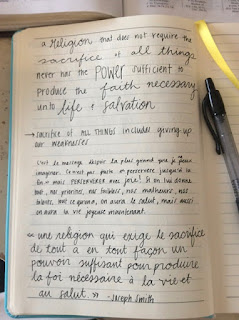 a Religion that does not require the
sacrifice of all things
never has the POWER sufficient to
produce the faith necessary
unto life & salvation
→ sacrifice of ALL THINGS includes giving up
our weaknesses
C'est le message depuis la plus grand que je j'avais
imaginer. Ce n'est pas juste persévérer jusqu'à la
fin mais PERSEVERER avec joie! Si on lui donne
tout, nos priorités, nos faiblesses, nos malheurs, nos
talents, tout ce qu'on a, on aura le salut, mais aussi
on aura la vie joyeuse maintenant.
"une religion qui exige le sacrifice
de tout a en tout façon un
pouvoir suffisant pour produire
la foi nécessaire à la vie et
au salut" - Joseph Smith